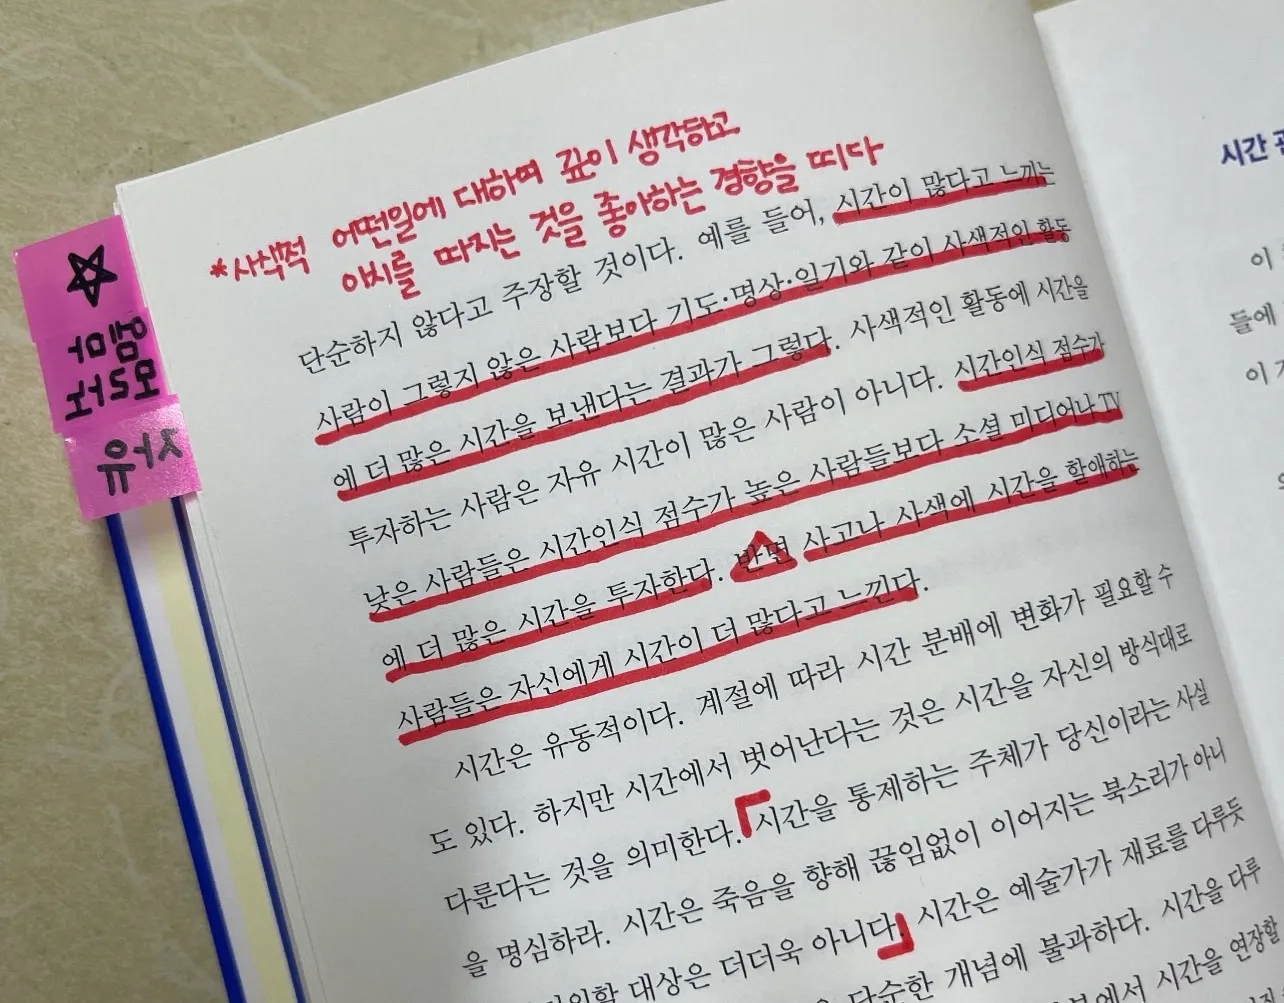 *사색적 어떤일에 대하여 깊이 생각하고
이치를 따지는 것을 좋아하는 경향을 띠다
단순하지 않다고 주장할 것이다. 예를 들어, 시간이 많다고 느끼는
사람이 그렇지 않은 사람보다 기도·명상·일기와 같이 사색적인 활동
에 더 많은 시간을 보낸다는 결과가 그렇다. 사색적인 활동에 시간을
투자하는 사람은 자유 시간이 많은 사람이 아니다. 시간인식 점수가
낮은 사람들은 시간인식 점수가 높은 사람들보다 소셜 미디어나 TV
에 더 많은 시간을 투자한다. 반면 사고나 사색에 시간을 할애하는
사람들은 자신에게 시간이 더 많다고 느낀다.
시간은 유동적이다. 계절에 따라 시간 분배에 변화가 필요할 수
도 있다. 하지만 시간에서 벗어난다는 것은 시간을 자신의 방식대로
다룬다는 것을 의미한다.「시간을 통제하는 주체가 당신이라는 사실
을 명심하라. 시간은 죽음을 향해 끊임없이 이어지는 북소리가 아니
대상은 더더욱 아니다.」시간은 예술가가 재료를 다루듯
단순한 개념에 불과하다. 시간을 다루
시간을 연장할
☆
엄마
자유
시간
이
들에
이